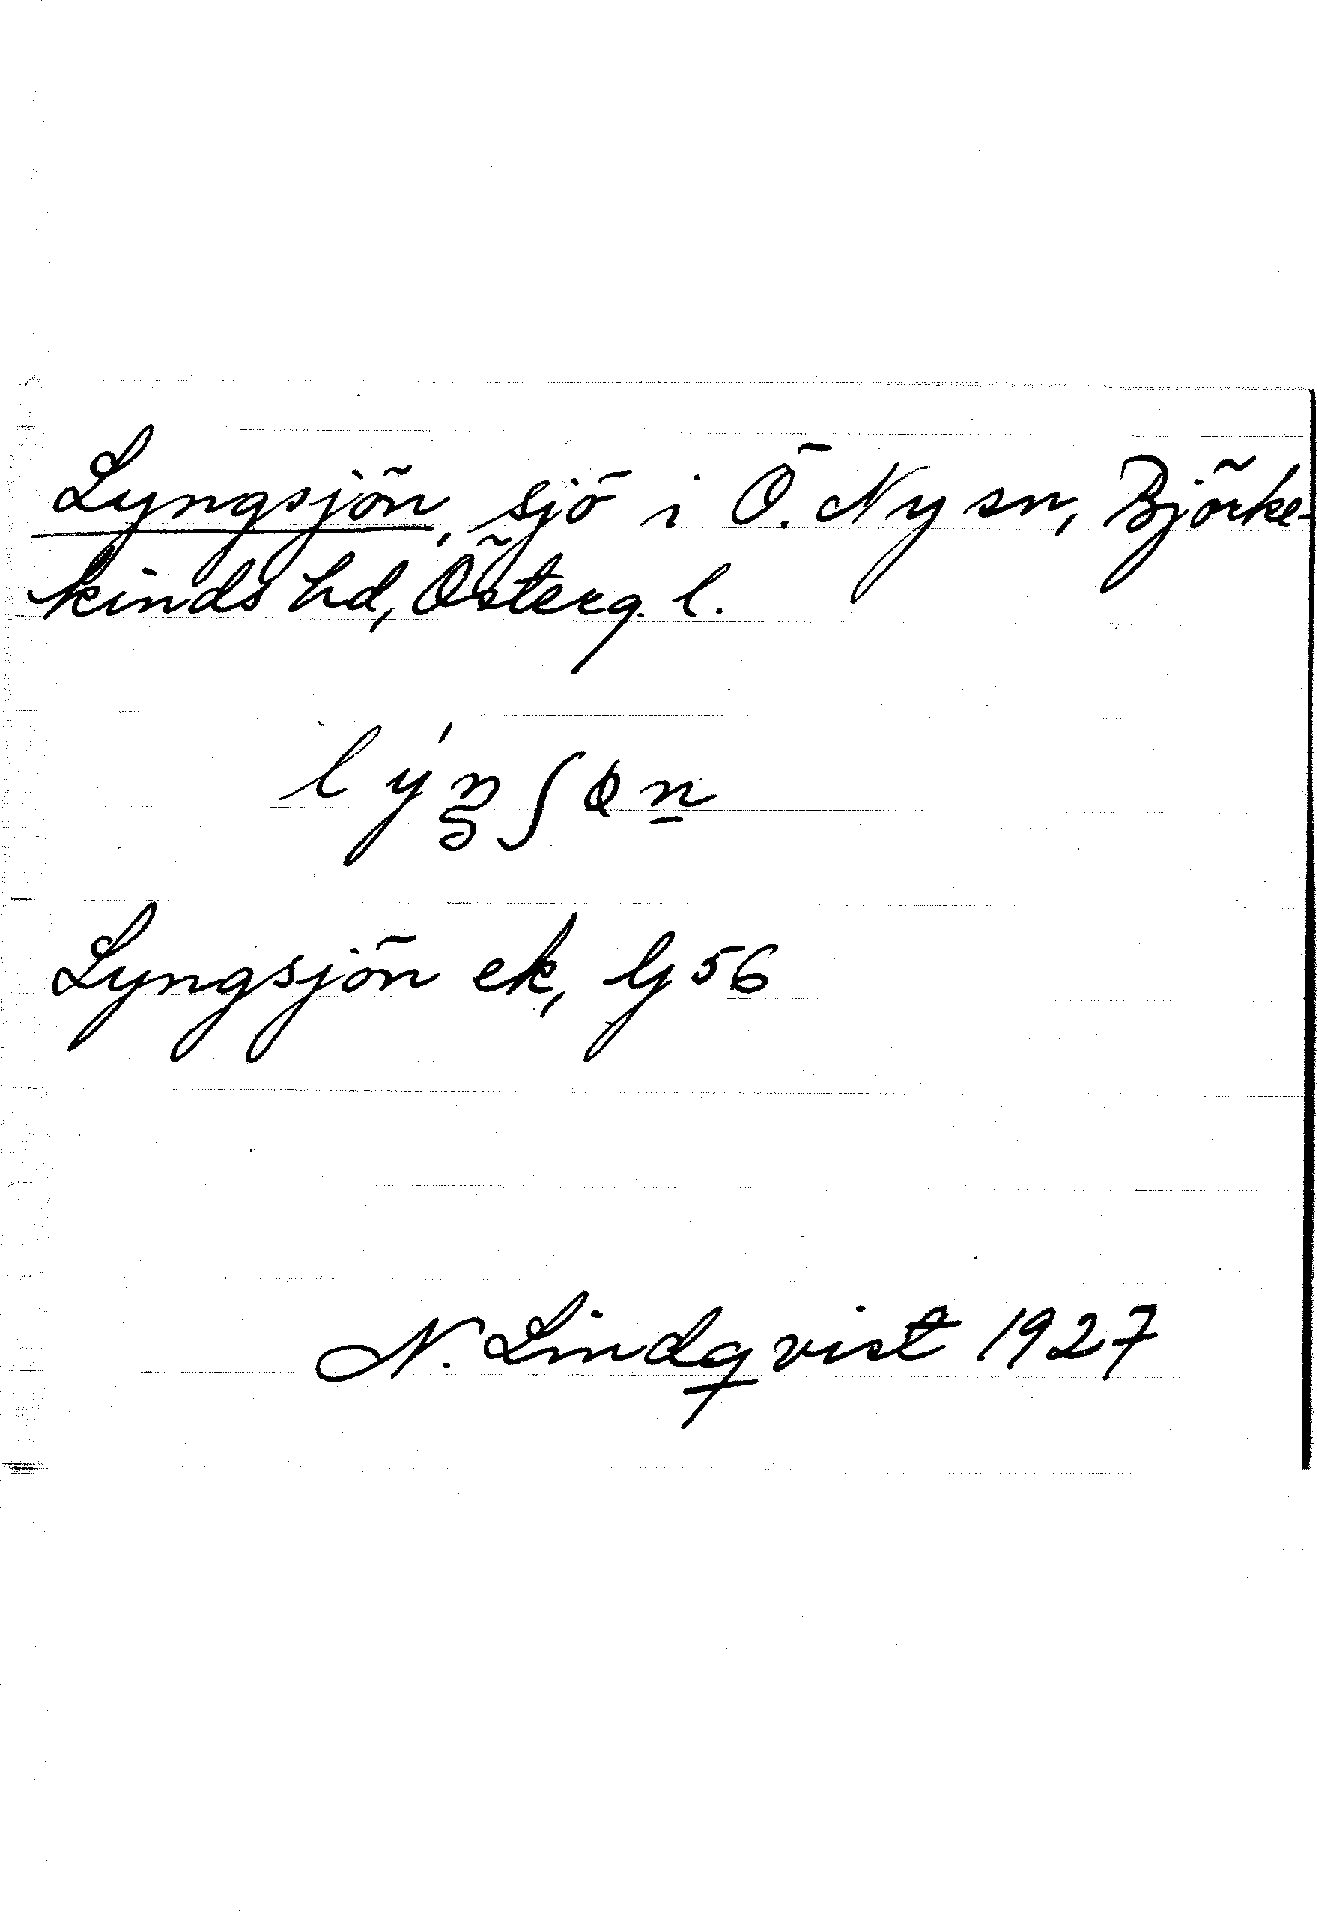 Lyngsjön, sjö i Ö. Ny sn, Björke-
kinds hd, Österg. l.
Lyngsjön ek, bl 56
N. Lindqvist 1927